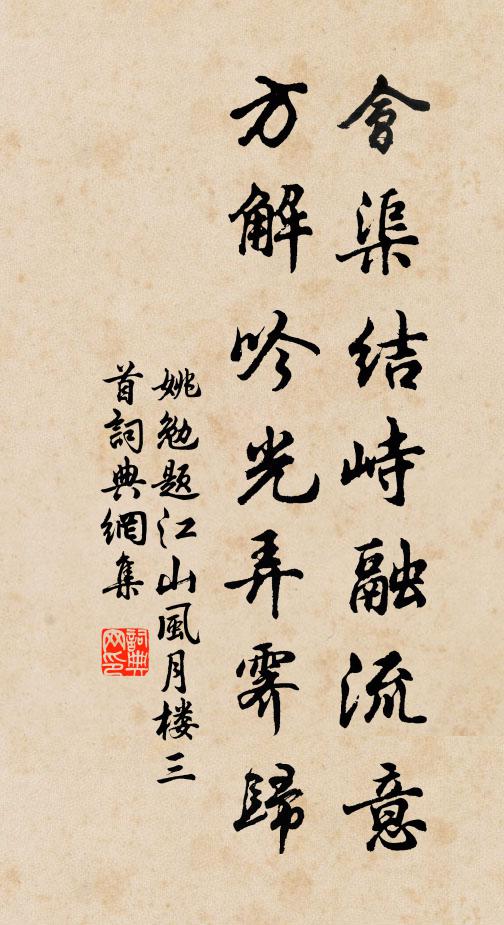 會渠結峙融流意
方解吟光弄霽歸
姚勉题江山風月楼三
首詞典網集
詞典网印